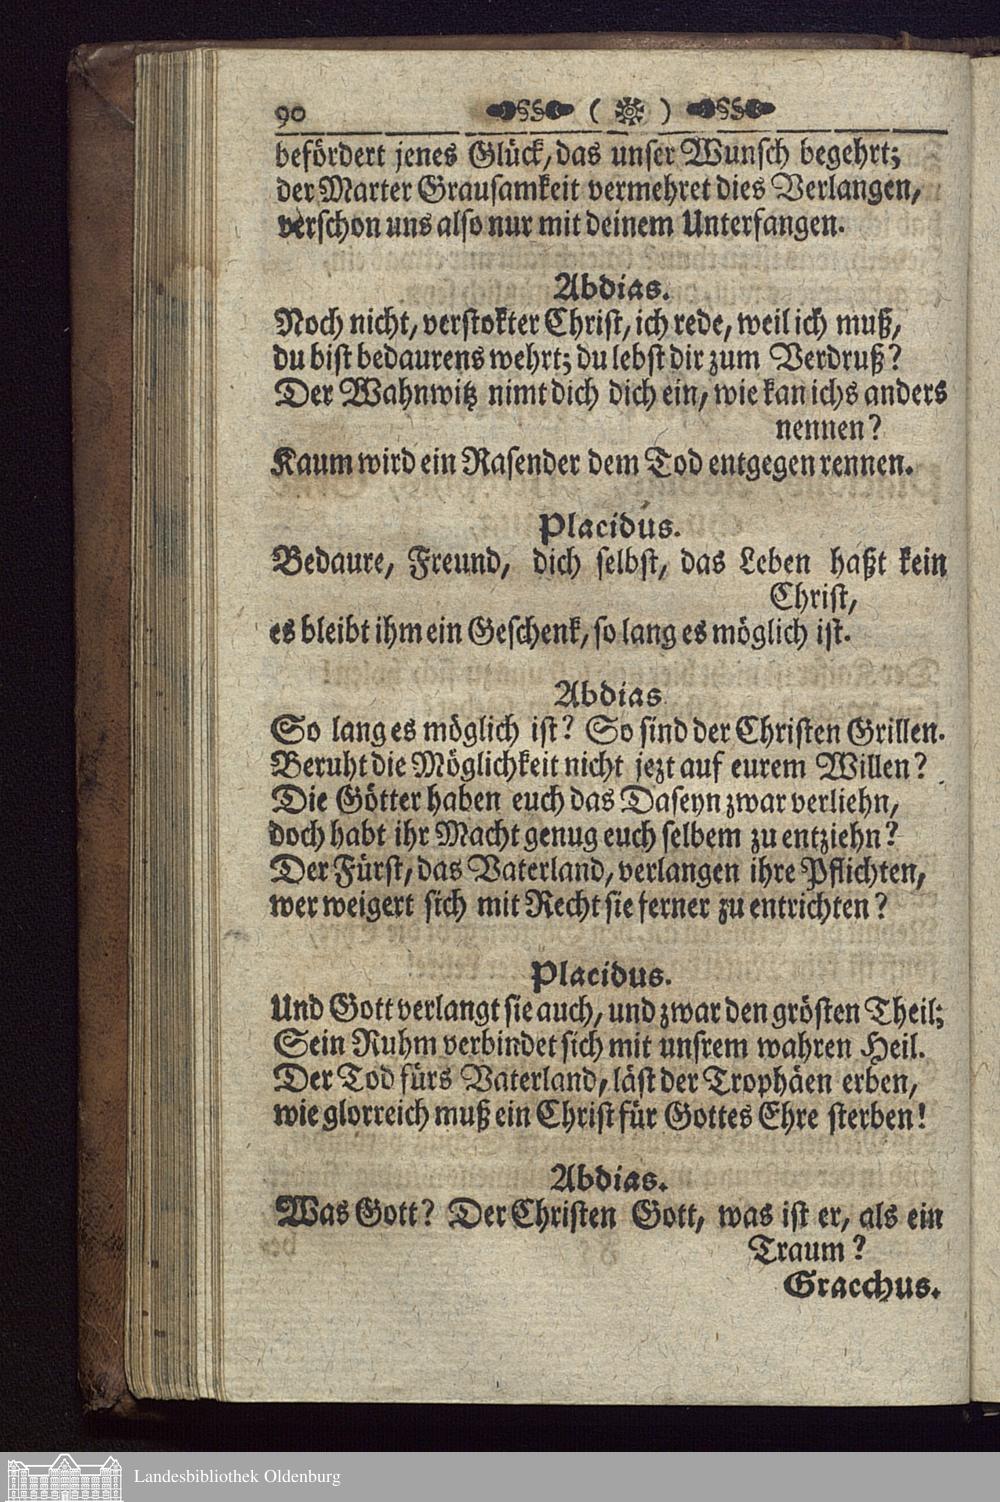 90 ( )
befördert jenes Glück, das unser Wunsch begehrt;
der Marter Grausamkeit vermehret dies Verlangen,
verschon uns also nur mit deinem Unterfangen.
Abdias.
Noch nicht, verstokter Christ, ich rede, weil ich muß,
du bist bedaurens wehrt; du lebst dir zum Verdruß?
Der Wahnwitz nimt dich dich ein, wie kan ichs anders
nennen?
Kaum wird ein Rasender dem Tod entgegen rennen.
Placidus.
Bedaure, Freund, dich selbst, das Leben haßt kein
Christ,
es bleibt ihm ein Geschenk, so lang es möglich ist.
Abdias
So lang es möglich ist? So sind der Christen Grillen.
Beruht die Möglichkeit nicht jezt auf eurem Willen?
Die Götter haben euch das Daseyn zwar verliehn,
doch habt ihr Macht genug euch selbem zu entziehn?
Der Fürst, das Vaterland, verlangen ihre Pflichten,
wer weigert sich mit Recht sie ferner zu entrichten?
Placidus.
Und Gott verlangt sie auch, und zwar den grösten Theil;
Sein Ruhm verbindet sich mit unsrem wahren Heil.
Der Tod fürs Vaterland, läst der Trophäen erben,
wie glorreich muß ein Christ für Gottes Ehre sterben!
Abdias.
Was Gott? Der Christen Gott, was ist er, als ein
Traum?
Gracchus.
Landesbibliothek Oldenburg